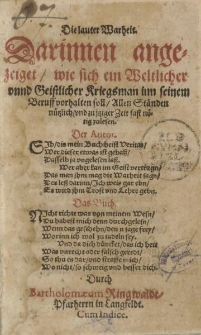 Die lauter Warheit.
Darinnen ange-
zeiget / wie sich ein Weltlicher
vnnd Geistlicher Kriegsman inn seinem
Beruff vorhalten soll / Allen Ständen
nützlich / vnd zu jtziger Zeit fast nö-
tig zulesen.
Der Autor.
Sih / dis mein Buch heist Veritas /
Wer dieser etwas ist gehass /
Dasselb ja vngelesen lass.
Wer aber kan im Geist vertragn /
Was man jhm mag die Warheit sagn /
Der less darinn / Ich weis gar ebn /
Es wird jhm Trost vnd Lehre gebn.
Das Buch.
Nicht richte was von meinem Wesn /
Du habest mich denn durchgelesn /
Wenn das geschehn, denn sage frey /
Worinn ich wol zu tadeln sey.
Vnd da dich düncket / das ich hett
Was vnrecht oder falsch geredt /
So thu es dar / vnd straffe mich /
Wo nicht / so schweig vnd besser dich.
Durch
Bartholomæum Ringwaldt /
Pfarherrn in Langfeldt.
Cum Indice.